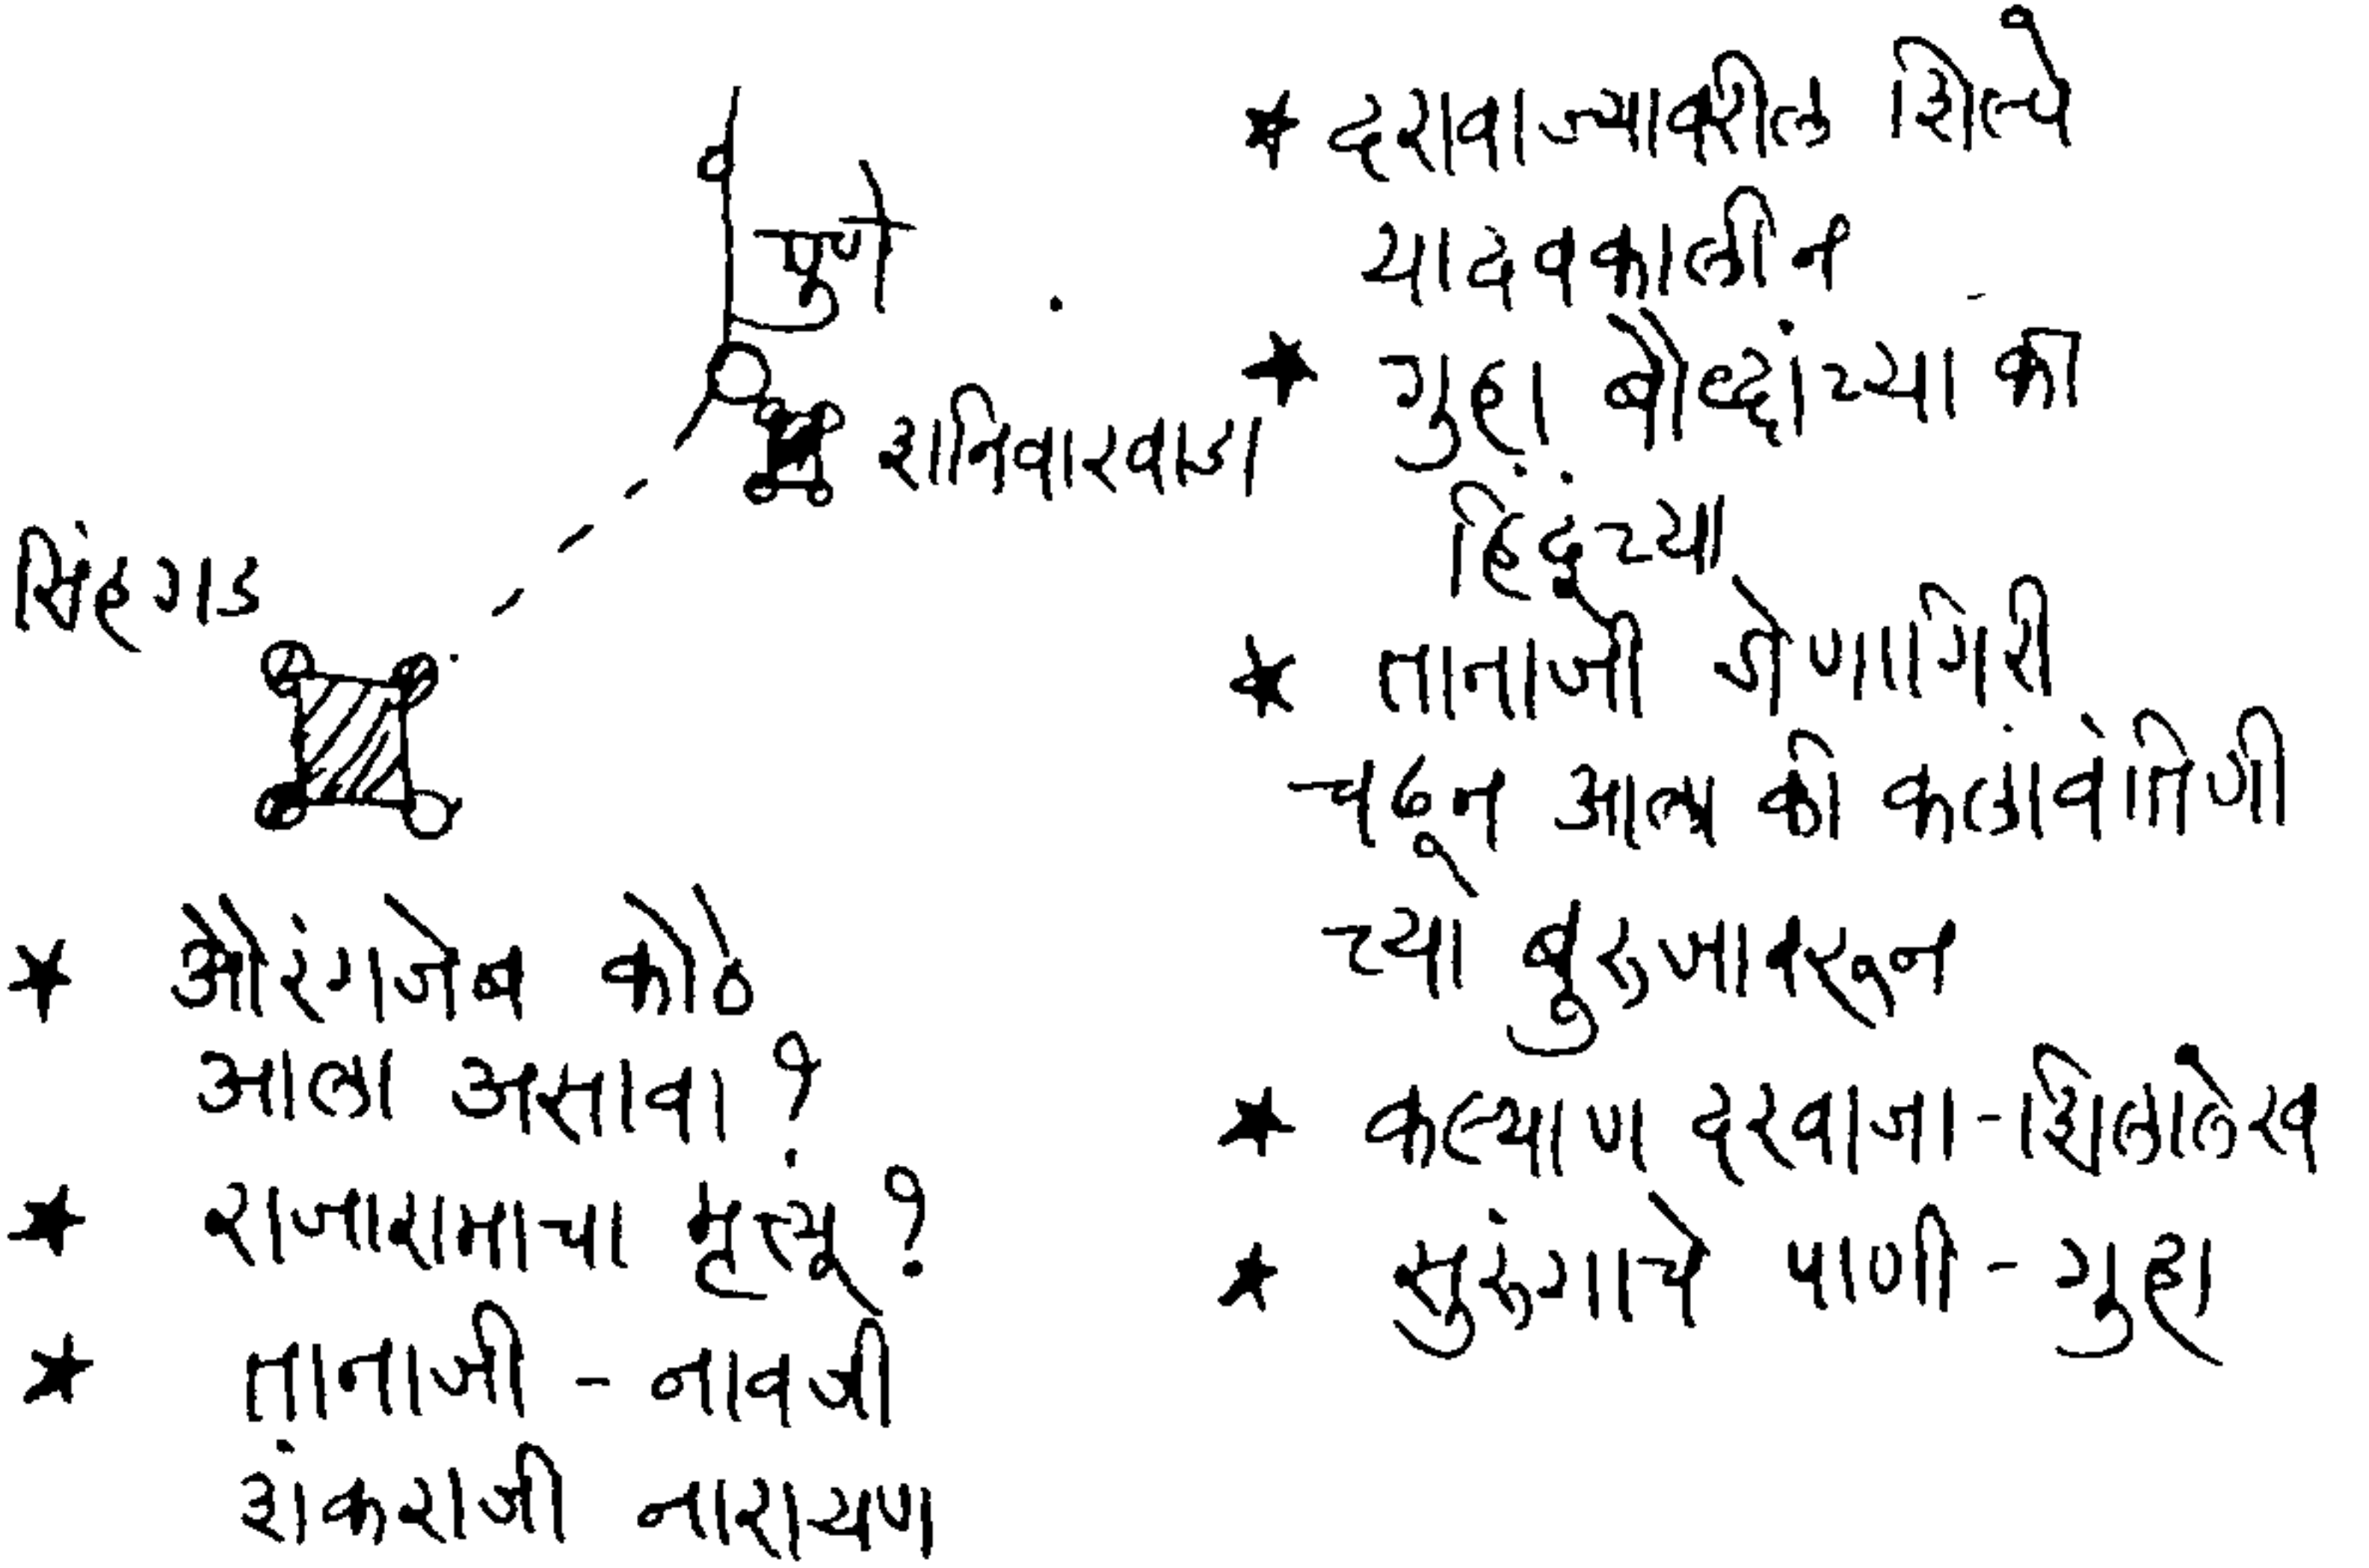 पुणे
शनिवारवाडा
सिंहगड
* औरंगजेब कोठे
आला असावा ?
* राजारामाचा मृत्यू ?
* तानाजी - नावजी
शंकराजी नारायण
* दरावाज्यावरील शिल्पे
यादवकालीन
* गुहा बौद्धांच्या की
हिंदूंच्या
* तानाजी डोणागिरी
चढून आला की कलावंतिणी
च्या बुरुजावरून
* कल्याण दरवाजा - शिलालेख
* सुरुंगाचे पाणी - गुहा